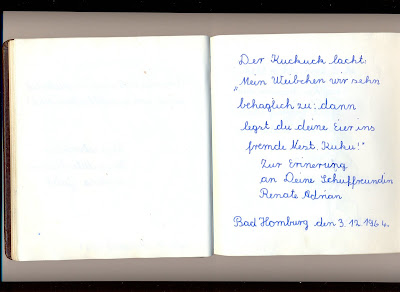 Der Kuckuck lacht:
„Mein Weibchen wir sehn
behaglich zu: dann
legst du deine Eier ins
fremde Nest. Kuku!"
Zur Erinerung
an Deine Schulfreundin
Renate Adrian
Bad Homburg den 3. 12. 1964.